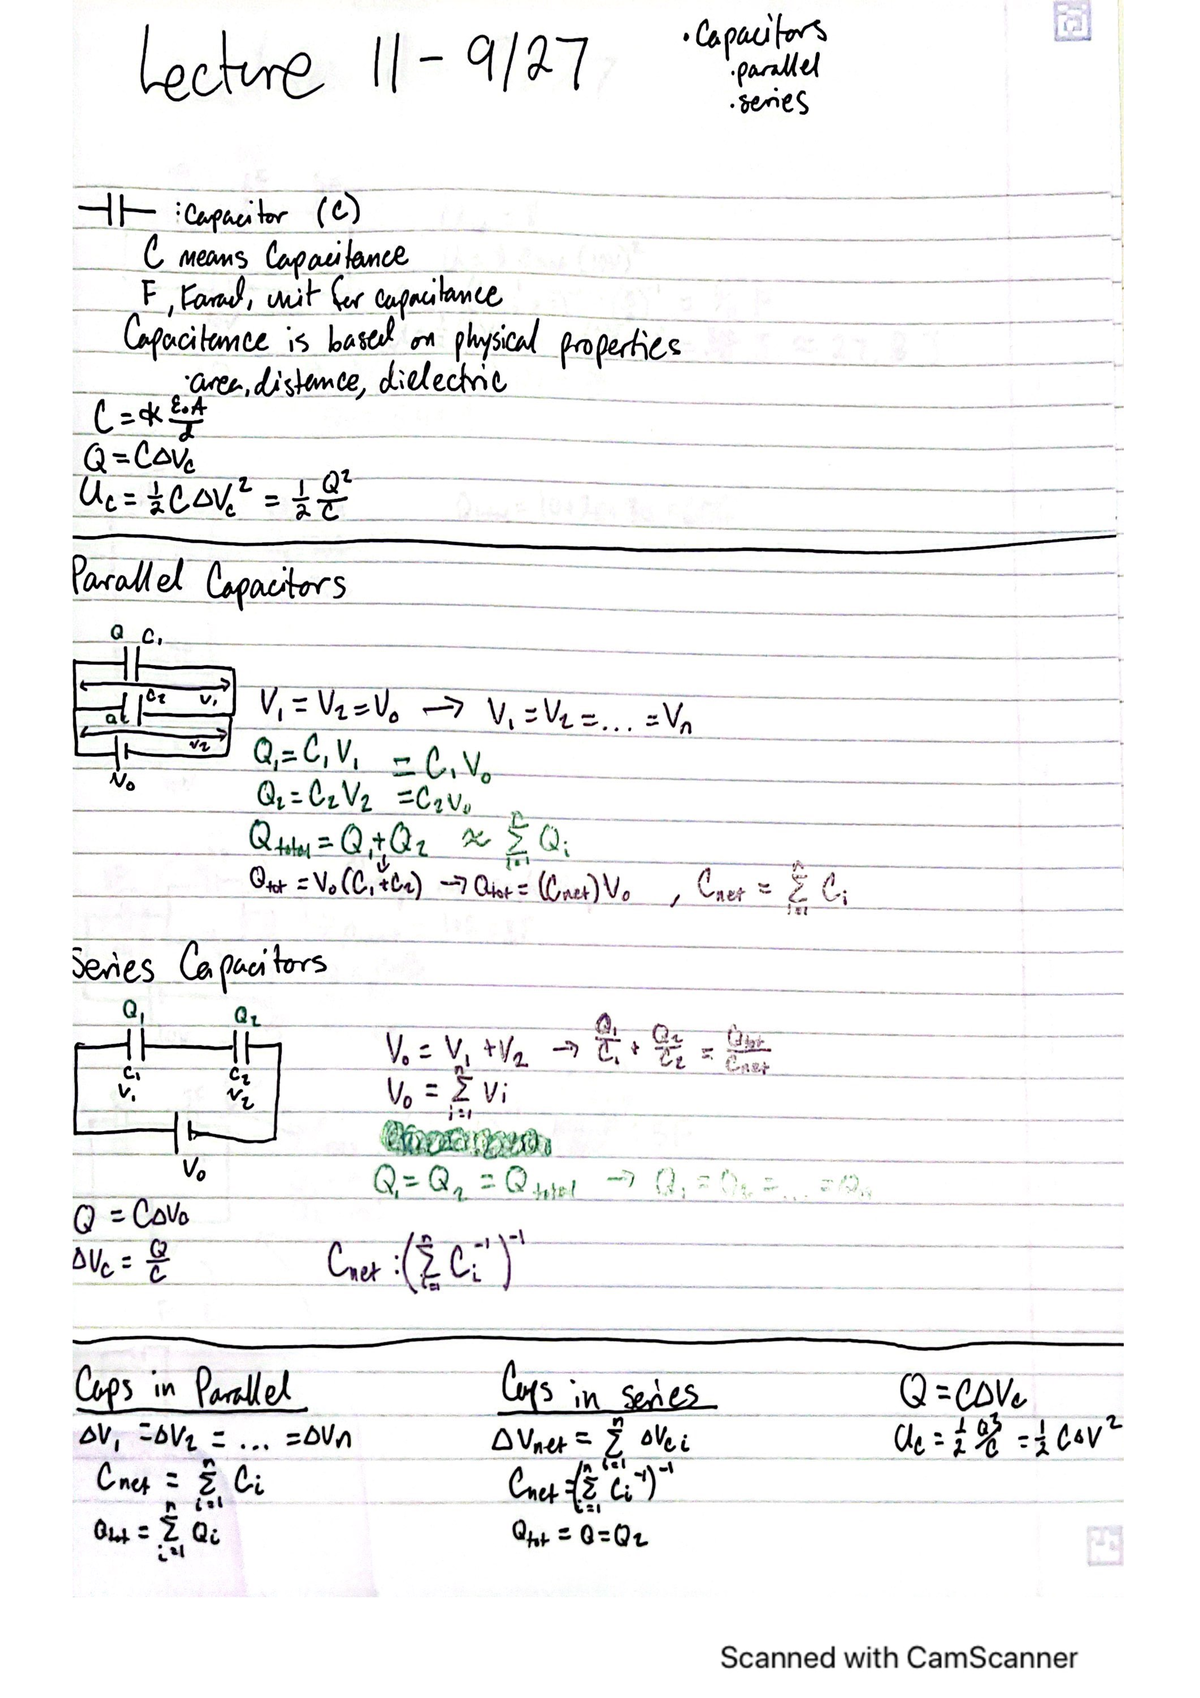 Lecture 11 - 9/27
• Capacitors
• parallel
• series
: Capacitor (C)
C means Capacitance
F, Farad, unit for capacitance
Capacitance is based on physical properties
• area, distance, dielectric
C = k ε₀A/d
Q = CΔVc
Uc = ½ C ΔVc² = ½ Q²/C
Parallel Capacitors
Q C₁
C₂ V₁
V₂
V₀
V₁ = V₂ = V₀ → V₁ = V₂ = ... = Vn
Q₁ = C₁V₁ = C₁V₀
Q₂ = C₂V₂ = C₂V₀
Qtotal = Q₁ + Q₂ ≈ Σ i=1 n Qi
Qtot = V₀(C₁+C₂) → Qtot = (Cnet)V₀ , Cnet = Σ i=1 n Ci
Series Capacitors
Q₁ Q₂
C₁ C₂
V₁ V₂
V₀
V₀ = V₁ + V₂ → Q₁/C₁ + Q₂/C₂ = Qtot/Cnet
V₀ = Σ i=1 n Vi
Q₁ = Q₂ = Qtotal → Q₁ = Q₂ = ... = Qn
Q = CΔV₀
ΔVc = Q/C
Cnet : (Σ i=1 n Ci⁻¹)⁻¹
Caps in Parallel
ΔV₁ = ΔV₂ = ... = ΔVn
Cnet = Σ i=1 n Ci
Qtot = Σ i=1 n Qi
Caps in series
ΔVnet = Σ i=1 n ΔVci
Cnet = (Σ i=1 n Ci⁻¹)⁻¹
Qtot = Q = Q₂
Q = CΔVc
Uc = ½ Q²/C = ½ CΔV²
Scanned with CamScanner